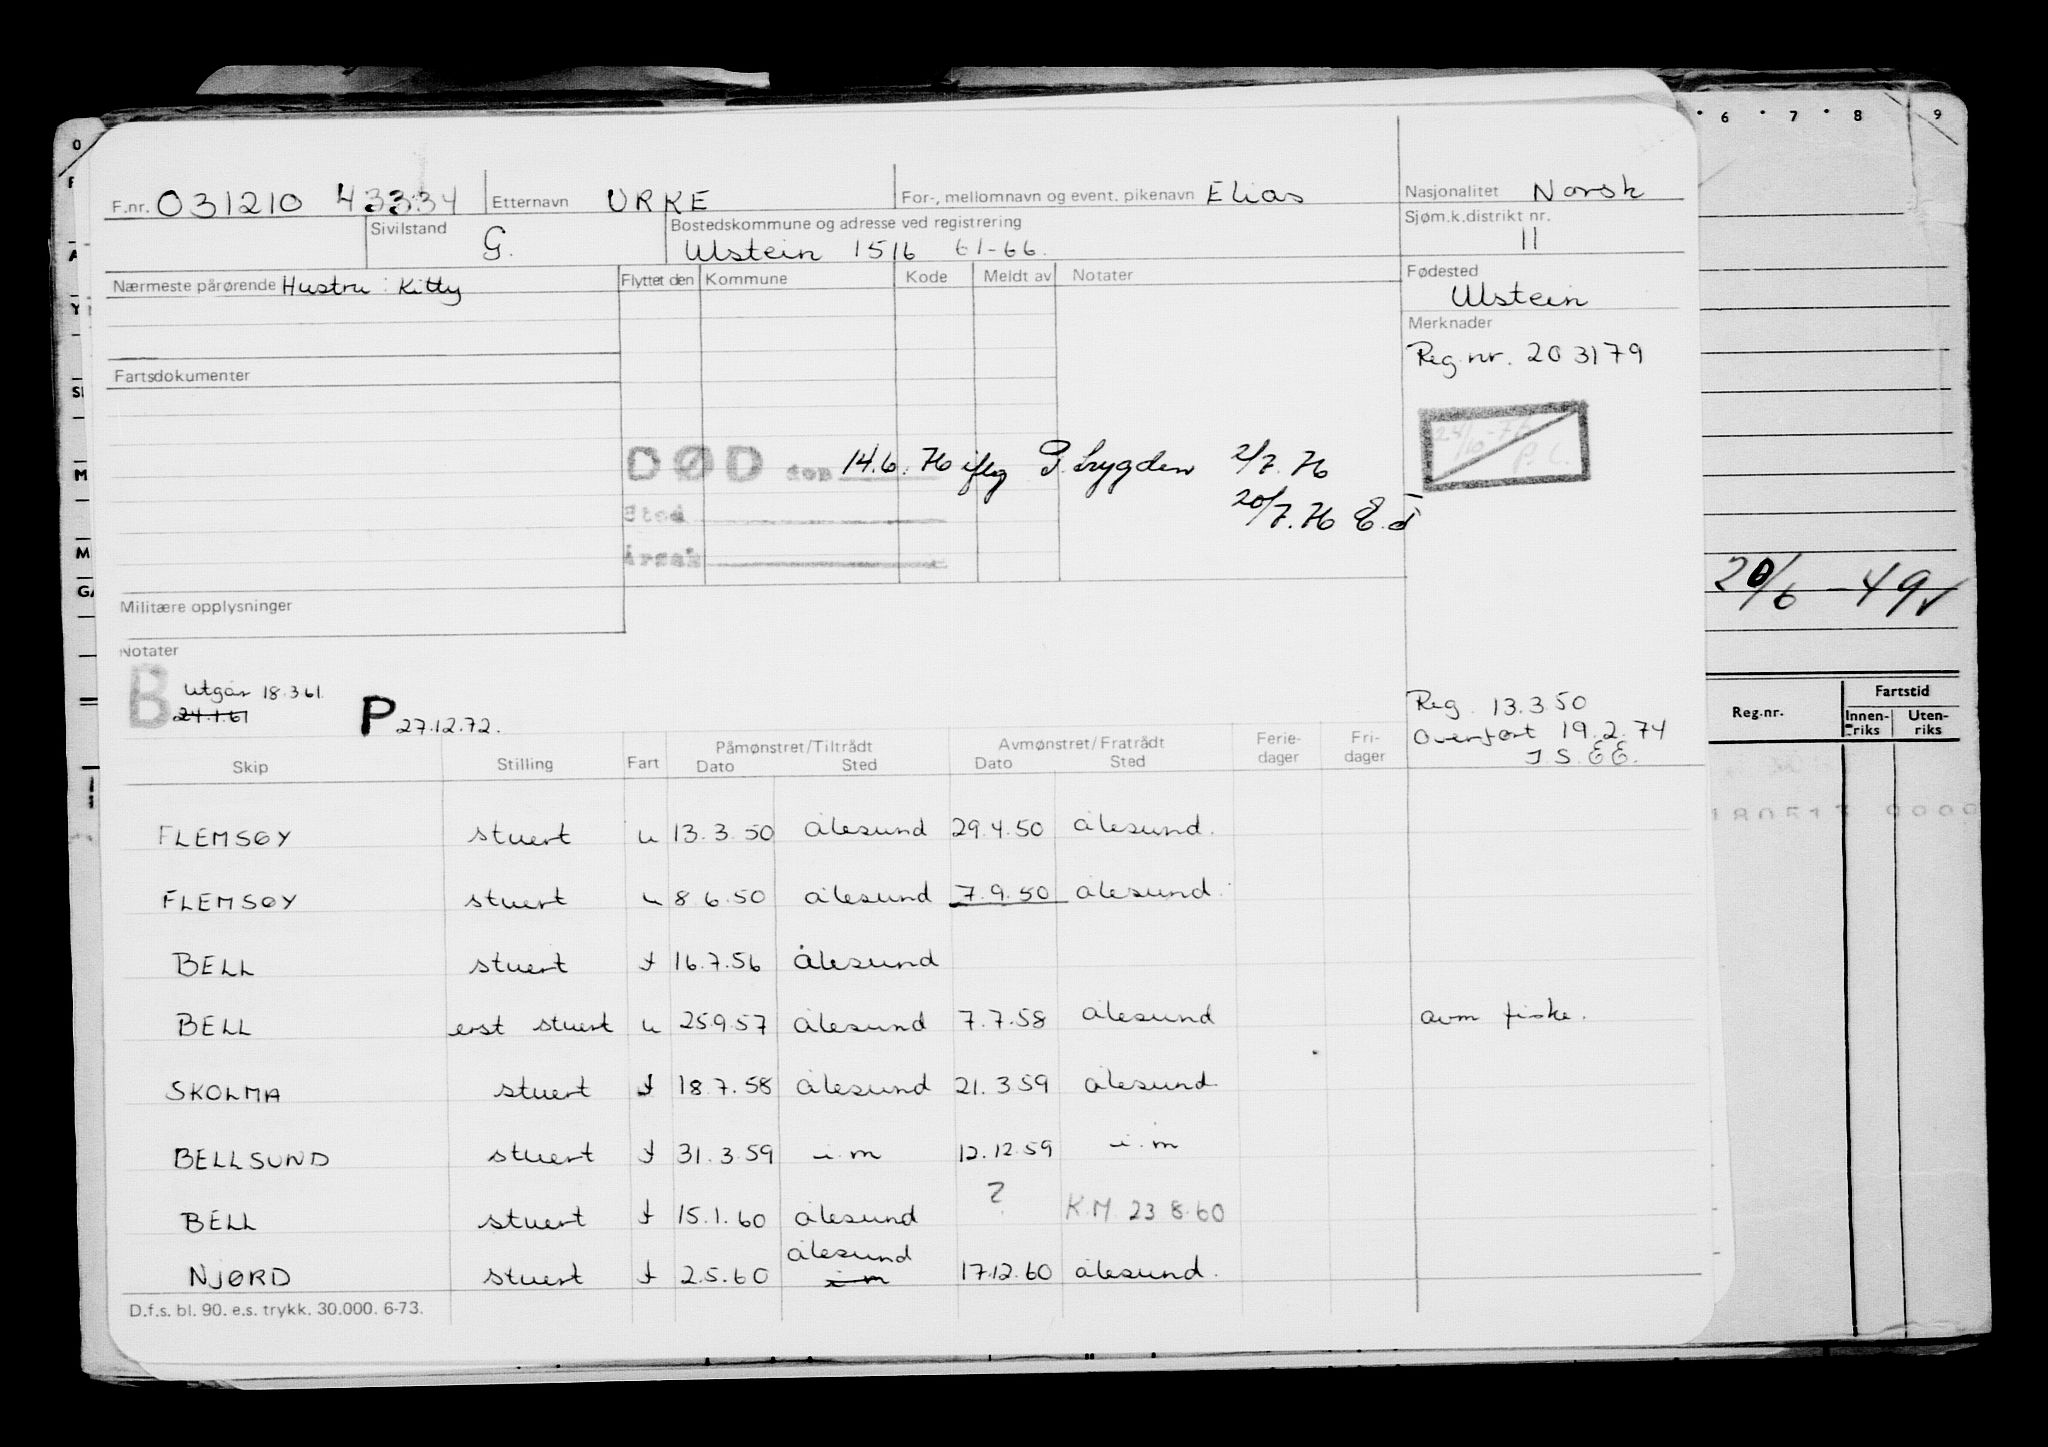 F.nr. 031210 43334 Etternavn URKE For-, mellomnavn og event. pikenavn Elias Nasjonalitet Norsk
Sivilstand G. Bostedskommune og adresse ved registrering Ulstein 1516 61-66. Sjøm.k.distrikt nr. 11
Nærmeste pårørende Hustru: Kitty Flyttet den Kommune Kode Meldt av Notater Fødested Ulstein
Merknader
Reg. nr. 203179
Fartsdokumenter
DØD den 14.6.76 iflg P. trygden 2/7.76
Sted 20/7.76
Årsak
Militære opplysninger
Notater
B Utgår 18.3 61.
24.1.61
P 27.12.72.
Reg. 13.3.50
Overført 19.2.74
I.S. E.E.
Skip Stilling Fart Påmønstret/Tiltrådt Dato Sted Avmønstret/Fratrådt Dato Sted Ferie-dager Fri-dager
FLEMSØY stuert u 13.3.50 Ålesund 29.4.50 Ålesund.
FLEMSØY stuert u 8.6.50 Ålesund 7.9.50 Ålesund.
BELL stuert f 16.7.56 Ålesund
BELL erst stuert u 25.9.57 Ålesund 7.7.58 Ålesund avm fiske.
SKOLMA stuert f 18.7.58 Ålesund 21.3.59 Ålesund.
BELLSUND stuert f 31.3.59 i.m 12.12.59 i.m
BELL stuert f 15.1.60 Ålesund ? K.M. 23 8.60
NJØRD stuert f 2.5.60 Ålesund i m 17.12.60 Ålesund.
D.f.s. bl. 90. e.s. trykk. 30.000. 6-73.
0 6 7 8 9
20/6 -49
Reg.nr. Fartstid
Innen-riks Uten-riks